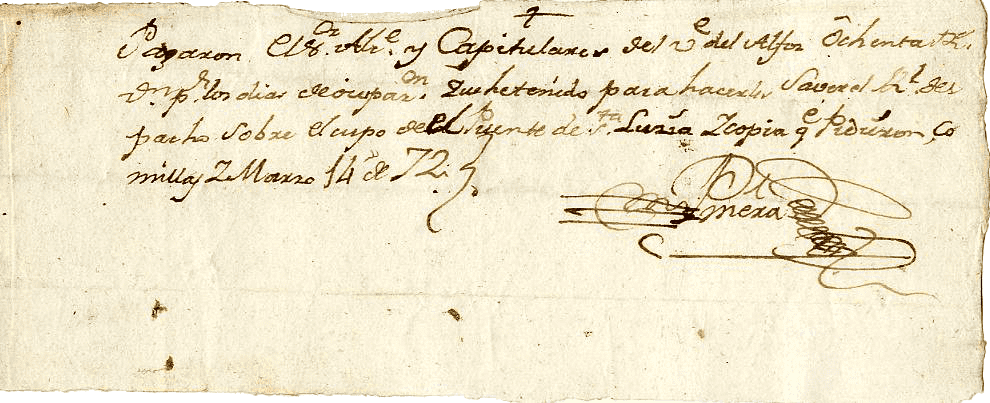 Pagaron el Sr. Alce. y Capitulares del ve. del Alfoz Ochenta Rs.
Vn. pr. los dias de ocupaon. Que he tenido para hacerles Saver el Rl. des
pacho sobre el cupo de el Puente de Sta. Luzia Y copia qe. Pidieron, Co
millas Y Marzo 14 de 72.
mera